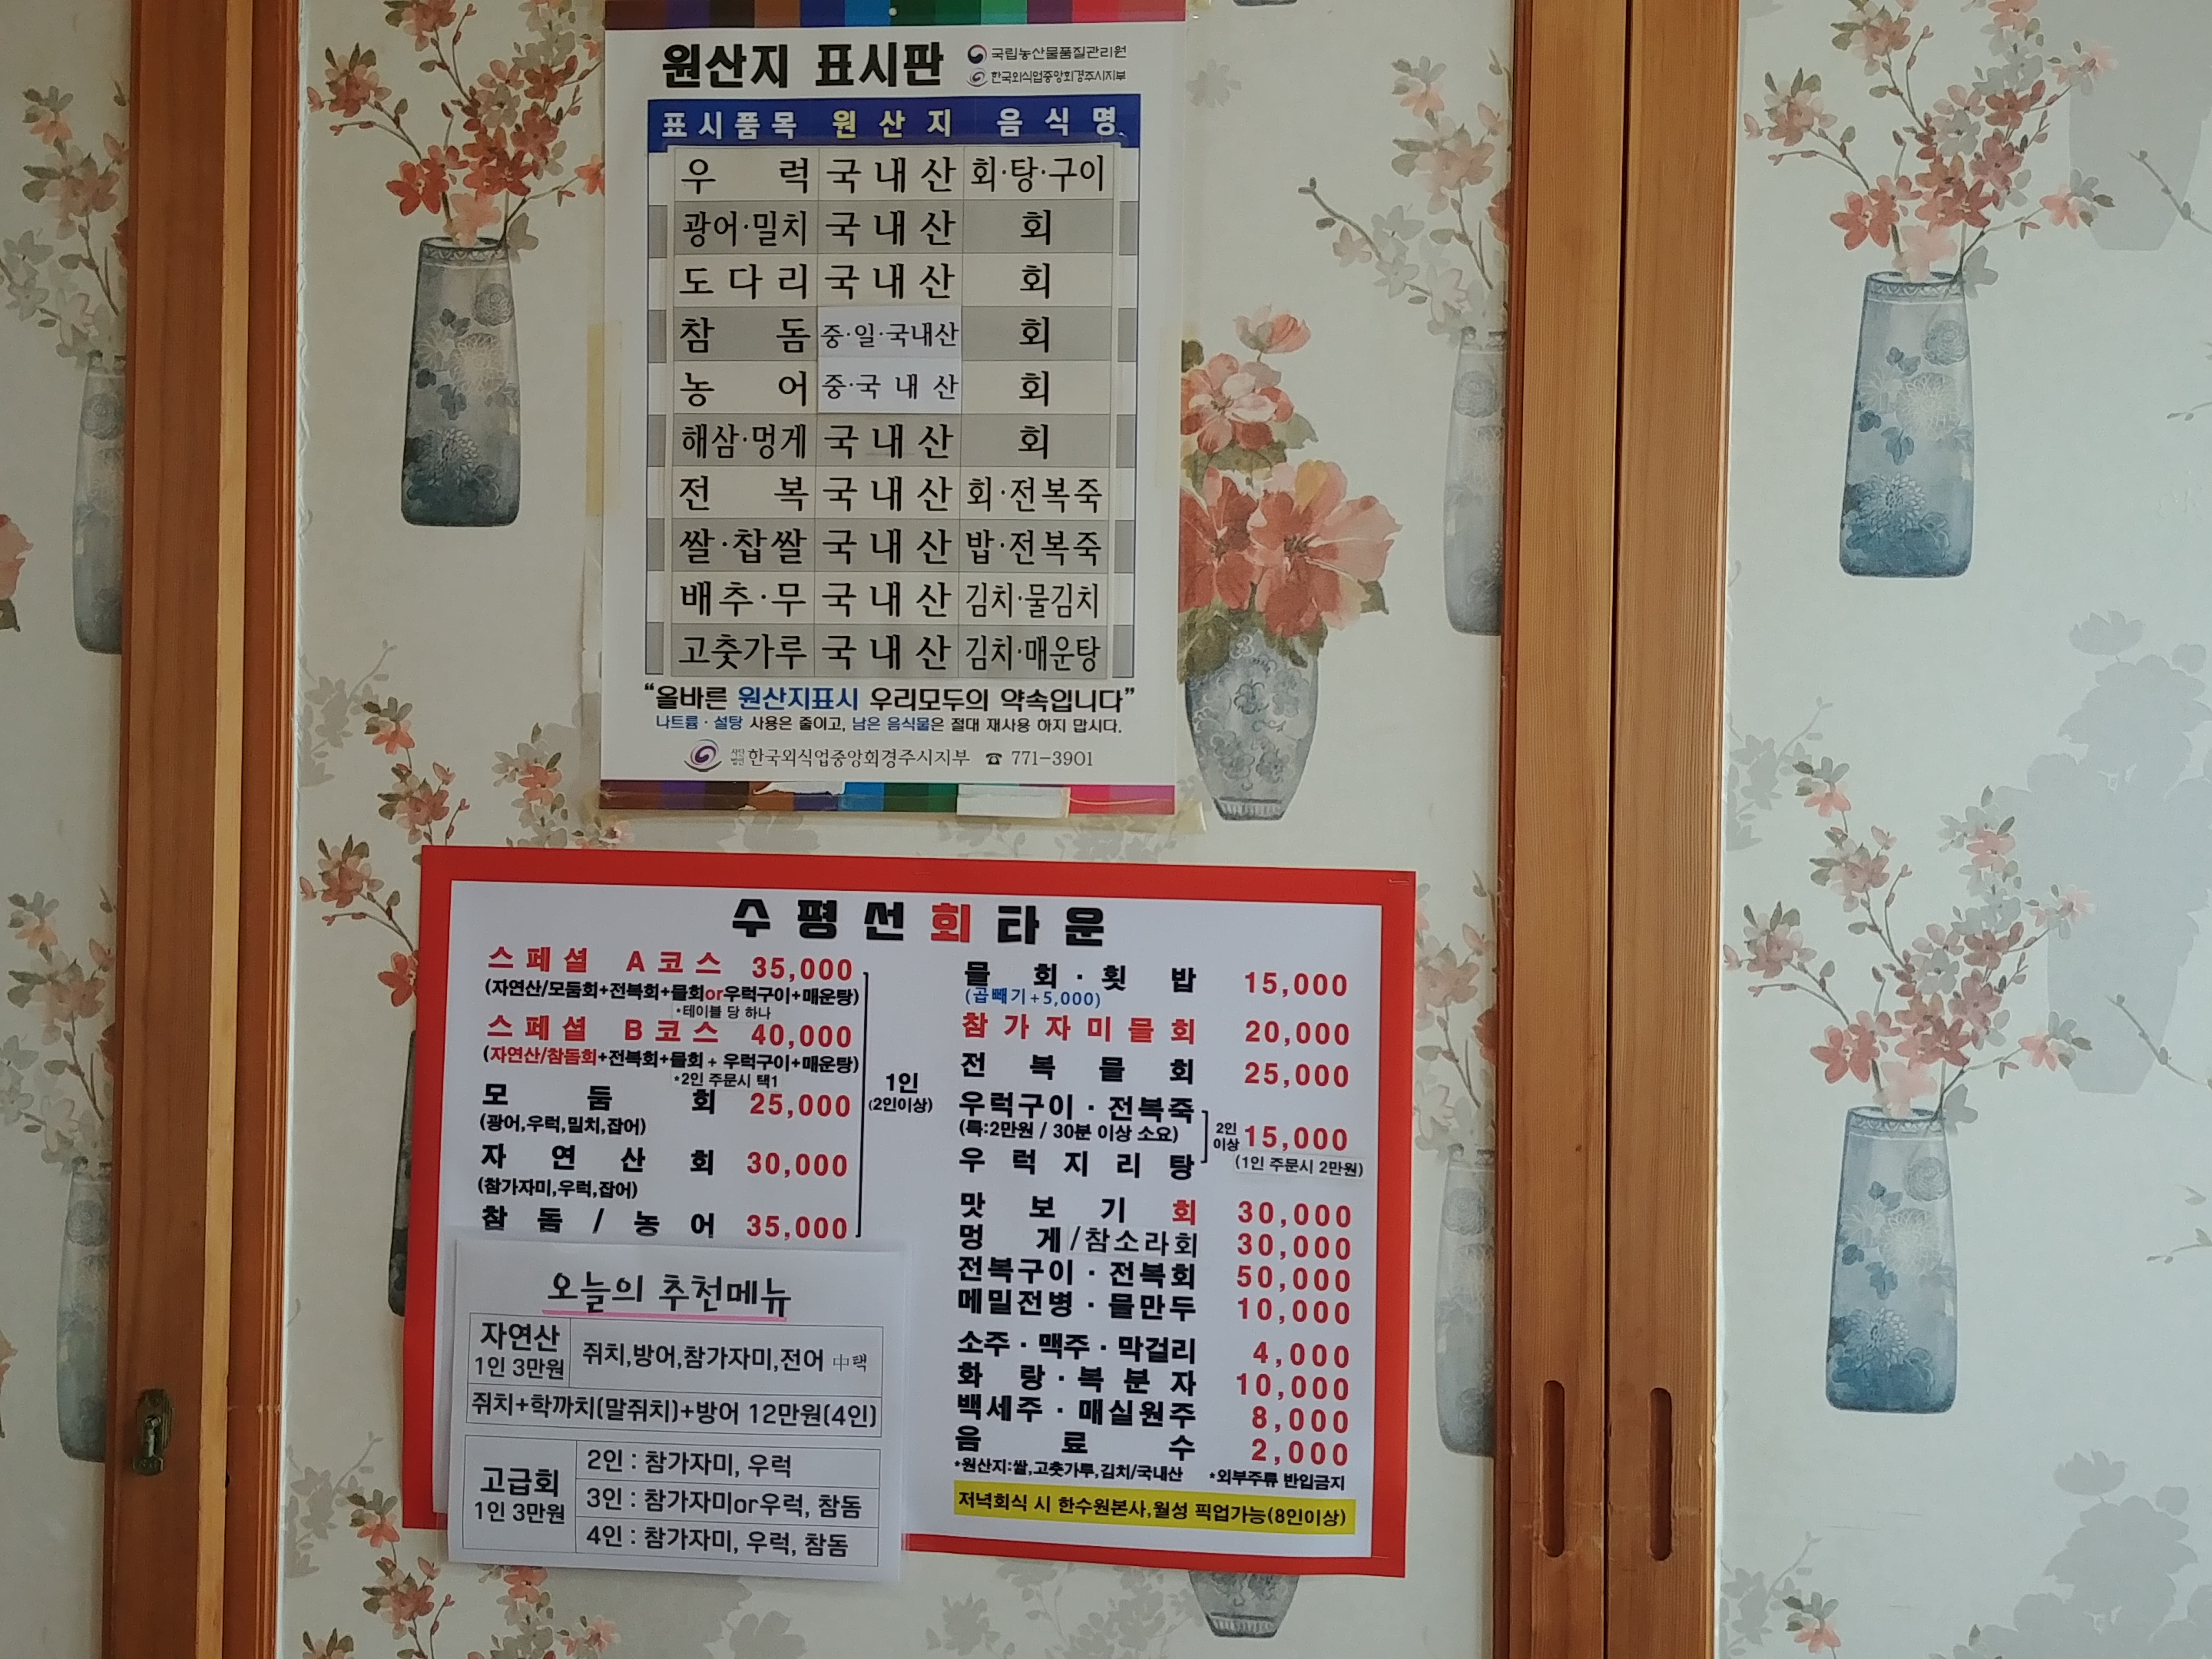 원산지 표시판
국립농산물품질관리원
한국외식업중앙회경주시지부
표시품목 원산지 음식명
우럭 국내산 회·탕·구이
광어·밀치 국내산 회
도다리 국내산 회
참돔 중·일·국내산 회
농어 중·국내산 회
해삼·멍게 국내산 회
전복 국내산 회·전복죽
쌀·찹쌀 국내산 밥·전복죽
배추·무 국내산 김치·물김치
고춧가루 국내산 김치·매운탕
“올바른 원산지표시 우리모두의 약속입니다”
나트륨·설탕 사용은 줄이고, 남은 음식물은 절대 재사용 하지 맙시다.
사단법인 한국외식업중앙회경주시지부 ☎ 771-3901
수평선회타운
스페셜 A코스 35,000
(자연산/모둠회+전복회+물회or우럭구이+매운탕)
*테이블 당 하나
스페셜 B코스 40,000
(자연산/참돔회+전복회+물회 + 우럭구이+매운탕)
*2인 주문시 택1
모둠회 25,000
(광어,우럭,밀치,잡어)
자연산회 30,000
(참가자미,우럭,잡어)
참돔/농어 35,000
1인
(2인이상)
오늘의 추천메뉴
자연산
1인 3만원
쥐치,방어,참가자미,전어 中택
쥐치+학까치(말쥐치)+방어 12만원(4인)
고급회
1인 3만원
2인 : 참가자미, 우럭
3인 : 참가자미or우럭, 참돔
4인 : 참가자미, 우럭, 참돔
물회·횟밥 15,000
(곱빼기+5,000)
참가자미물회 20,000
전복물회 25,000
우럭구이·전복죽
(특:2만원 / 30분 이상 소요)
우럭지리탕
2인
이상 15,000
(1인 주문시 2만원)
맛보기회 30,000
멍게/참소라회 30,000
전복구이·전복회 50,000
메밀전병·물만두 10,000
소주·맥주·막걸리 4,000
화랑·복분자 10,000
백세주·매실원주 8,000
음료수 2,000
*원산지:쌀,고춧가루,김치/국내산 *외부주류 반입금지
저녁회식 시 한수원본사,월성 픽업가능(8인이상)